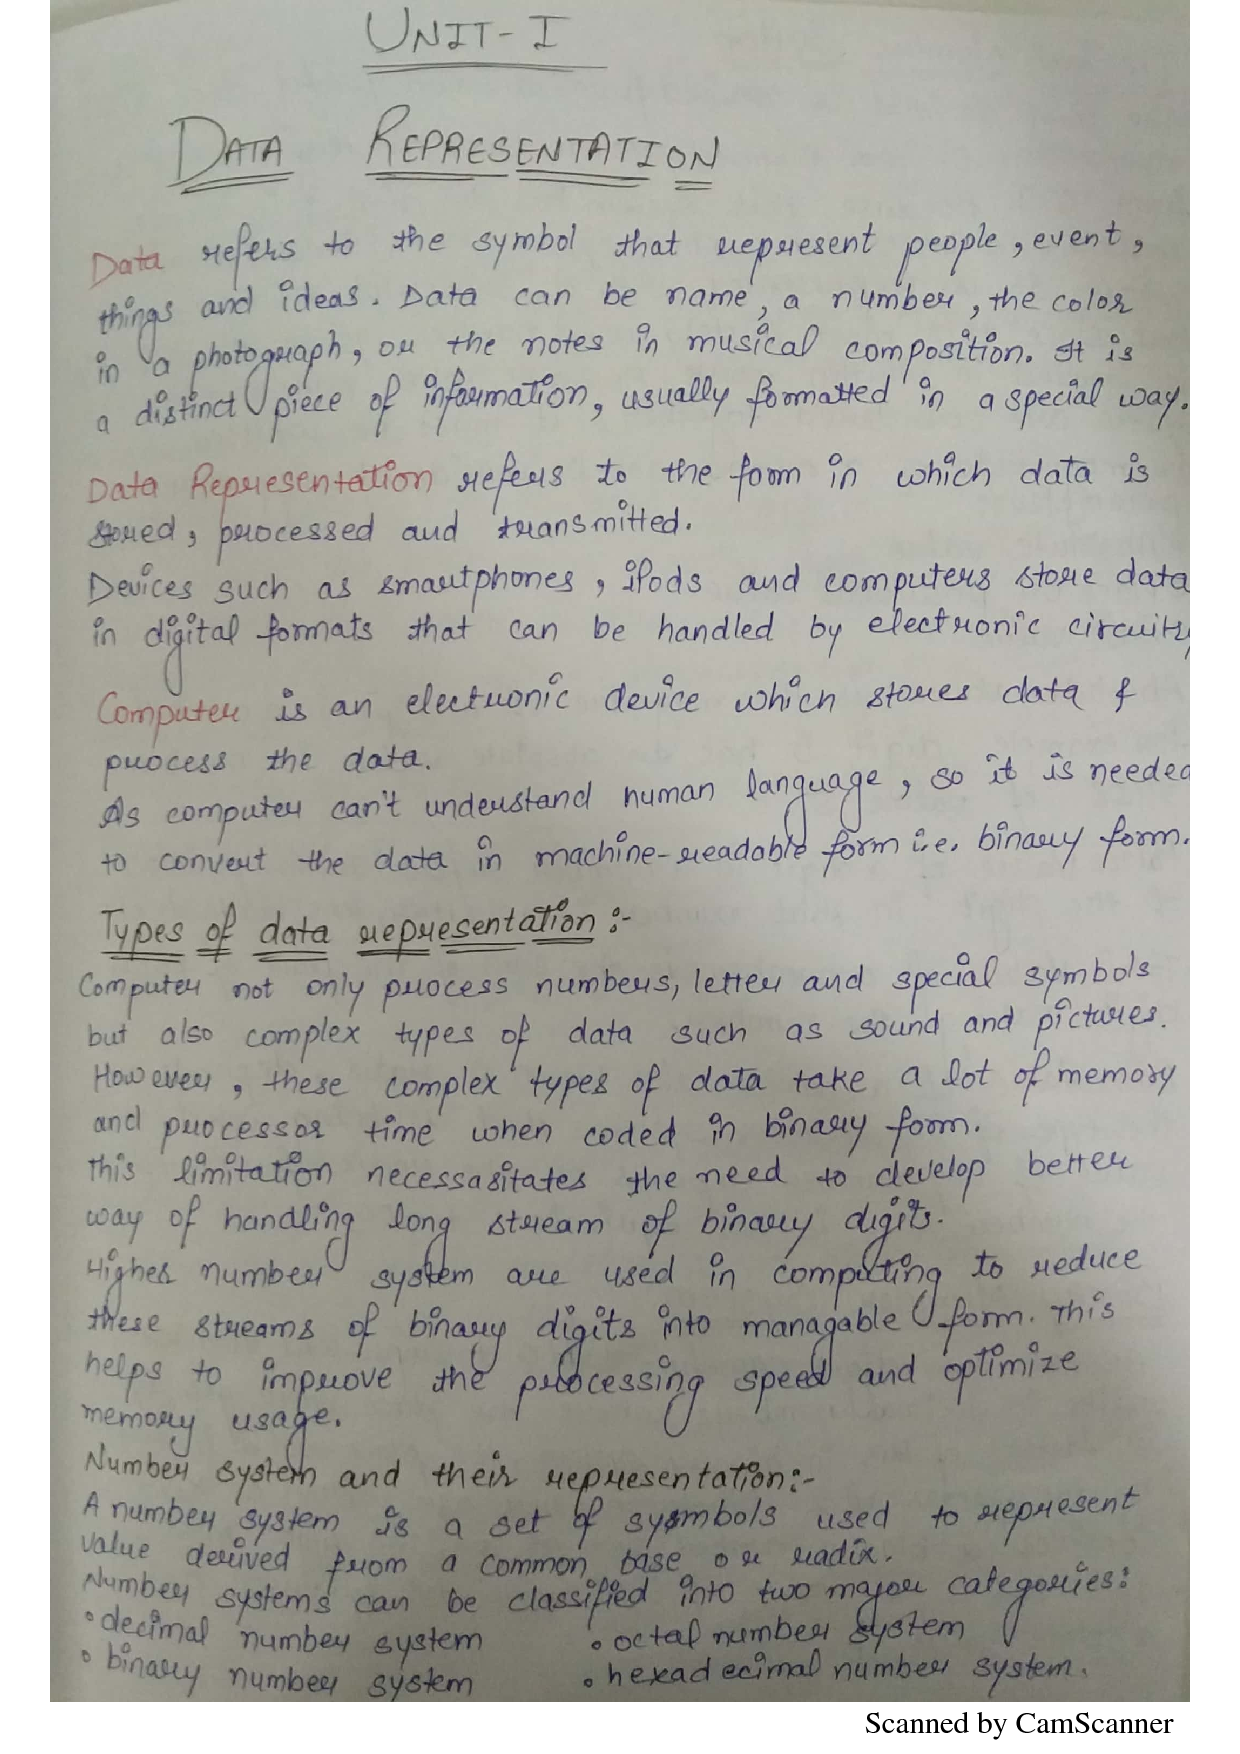 UNIT-I
DATA REPRESENTATION
Data refers to the symbol that represent people, event,
things and ideas. Data can be name, a number, the color
in a photograph, or the notes in musical composition. It is
a distinct piece of information, usually formatted in a special way.
Data Representation refers to the form in which data is
stored, processed and transmitted.
Devices such as smartphones, iPods and computers store data
in digital formats that can be handled by electronic circuitry
Computer is an electronic device which stores data &
process the data.
As computer can't understand human language, so it is needed
to convert the data in machine-readable form i.e. binary form.
Types of data representation :-
Computer not only process numbers, letter and special symbols
but also complex types of data such as sound and pictures.
However, these complex types of data take a lot of memory
and processor time when coded in binary form.
this limitation necessasitates the need to develop better
way of handling long stream of binary digits.
Higher number system are used in computing to reduce
these streams of binary digits into managable form. This
helps to improve the processing speed and optimize
memory usage.
Number system and their representation:-
A number system is a set of symbols used to represent
value derived from a common base or radix.
Number systems can be classified into two major categories:
• decimal number system • octal number system
• binary number system • hexadecimal number system.
Scanned by CamScanner